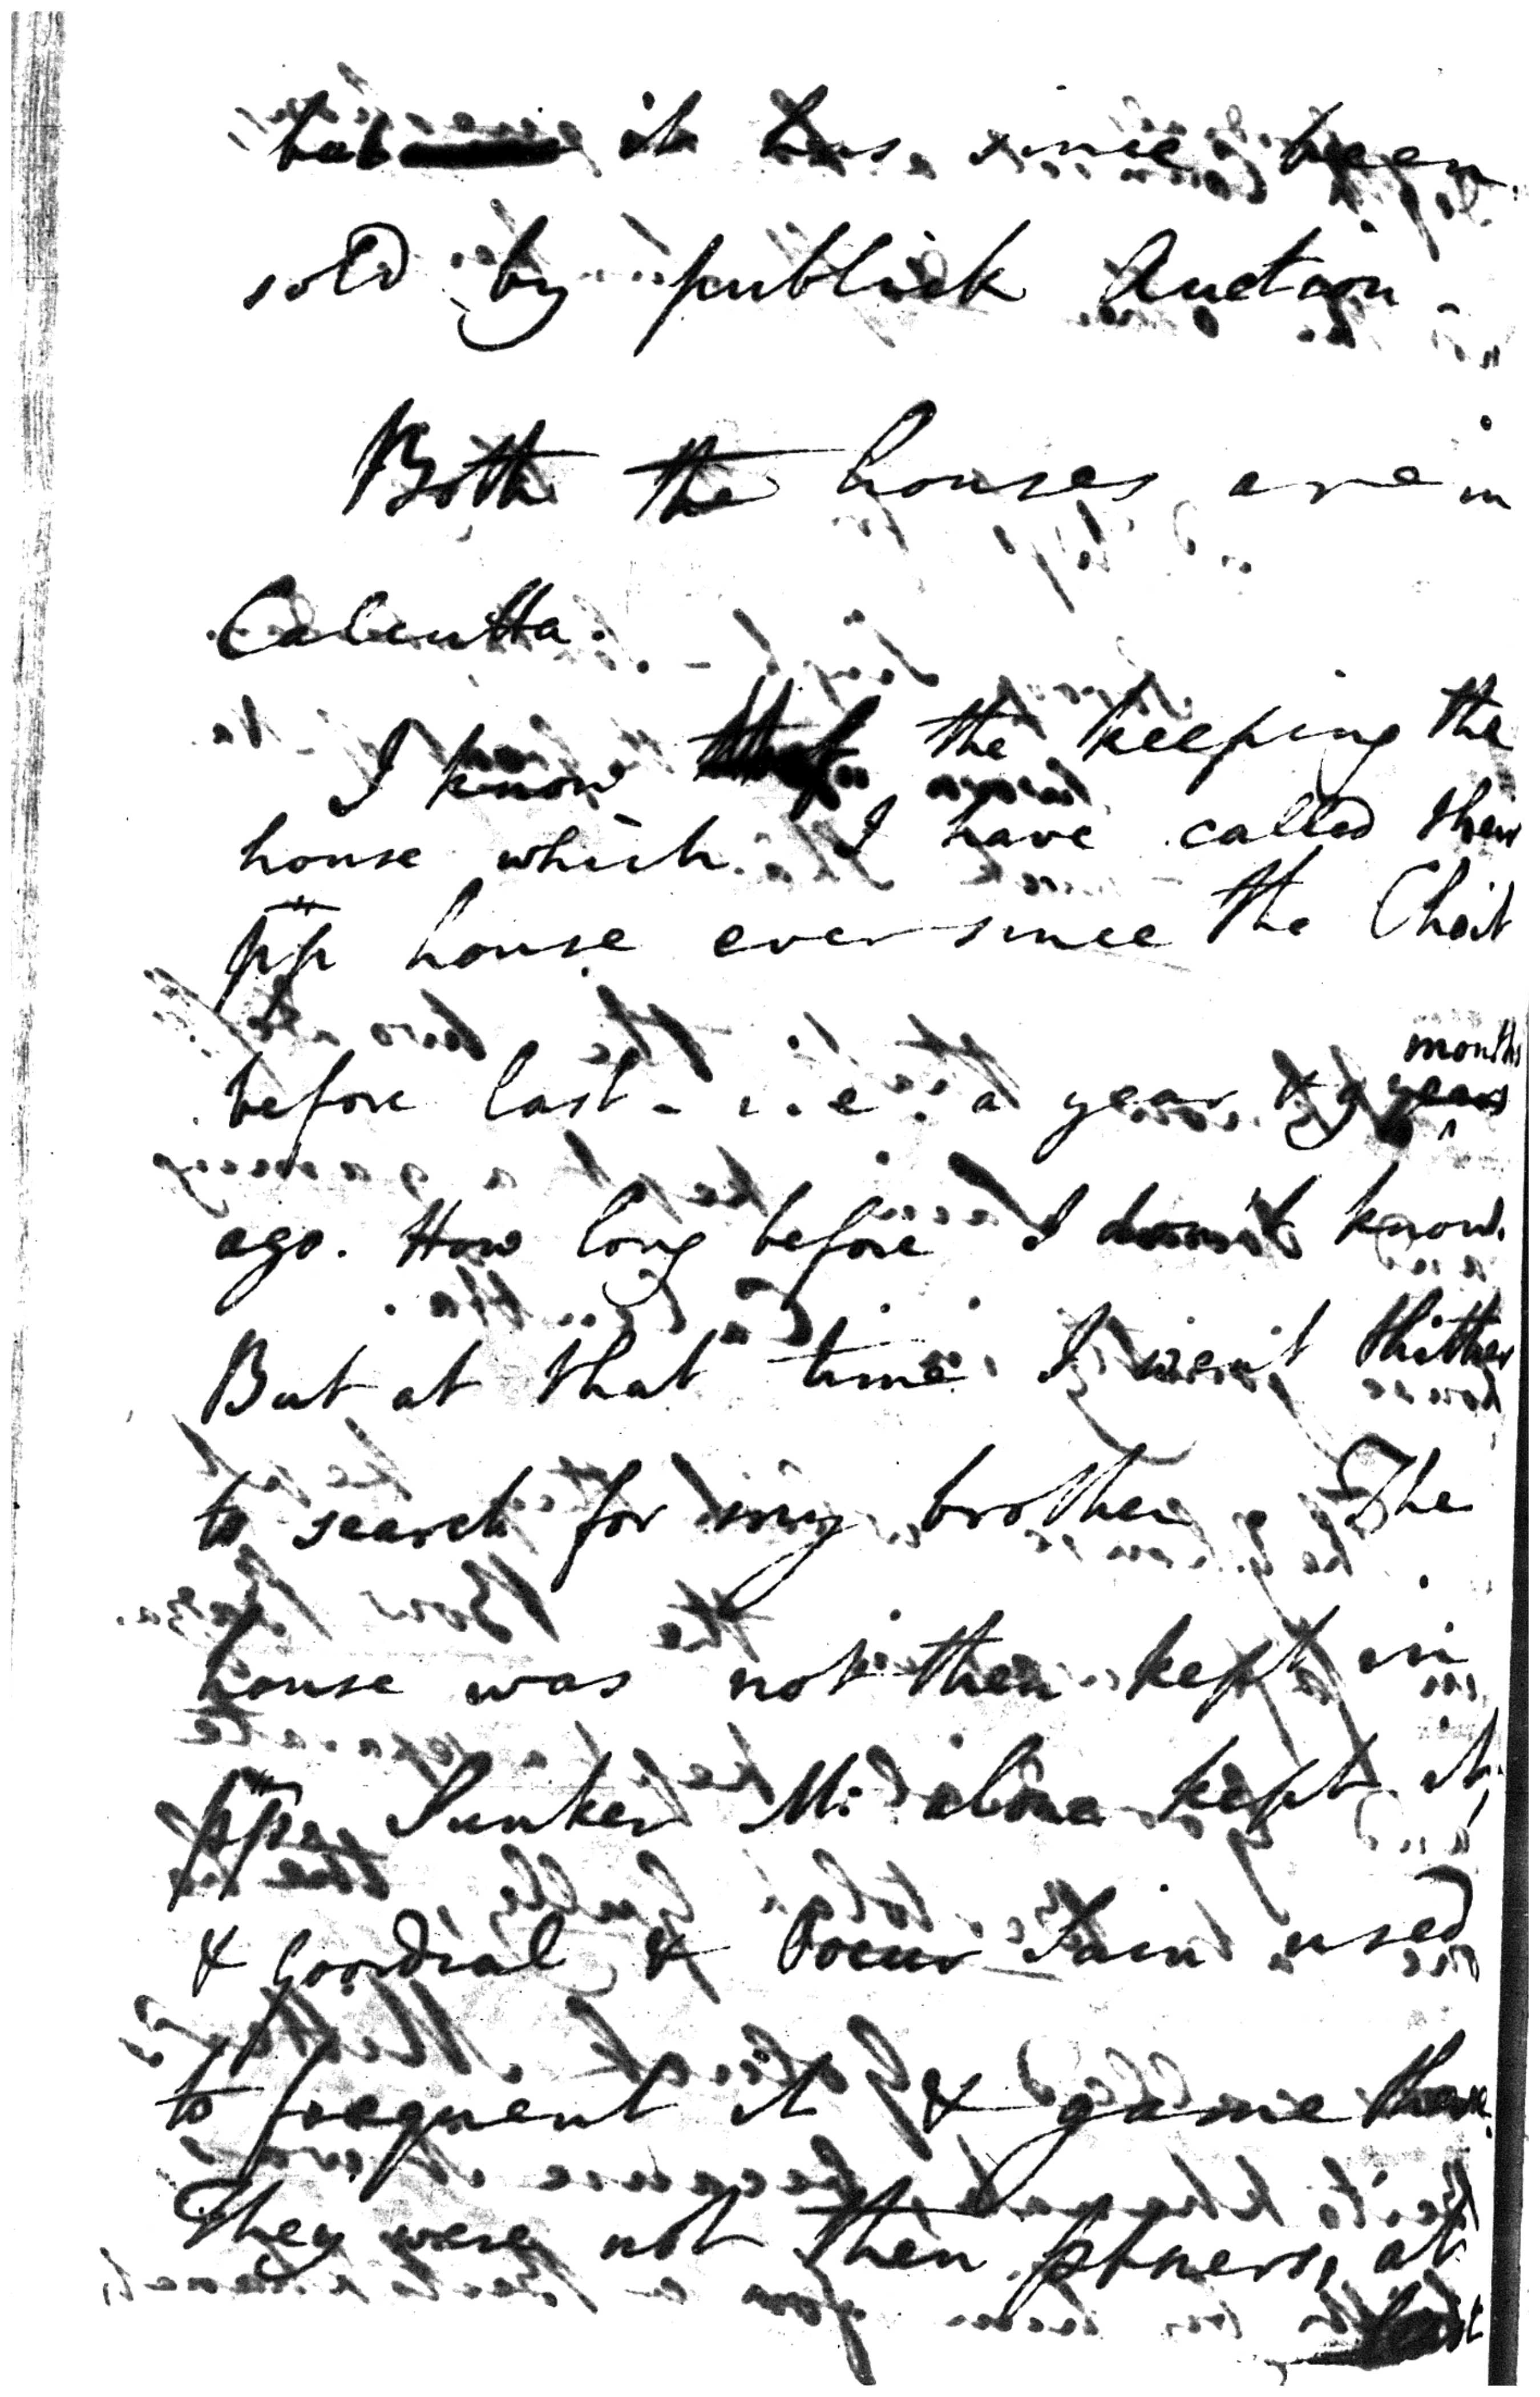 but it has since been
sold by publick Auction
Both the houses are in
Calcutta.
I know the keeping the
house which I have called their
pp house ever since the Cheit
months
before last - i.e. a year & 9 years
ago. How long before I don't know.
But at that time I went thither
to search for my brother. The
house was not then kept in
pp. Sunker M: alone kept it,
& Goordial & Ram used
to frequent it & game there.
They were not then ptners, at
least